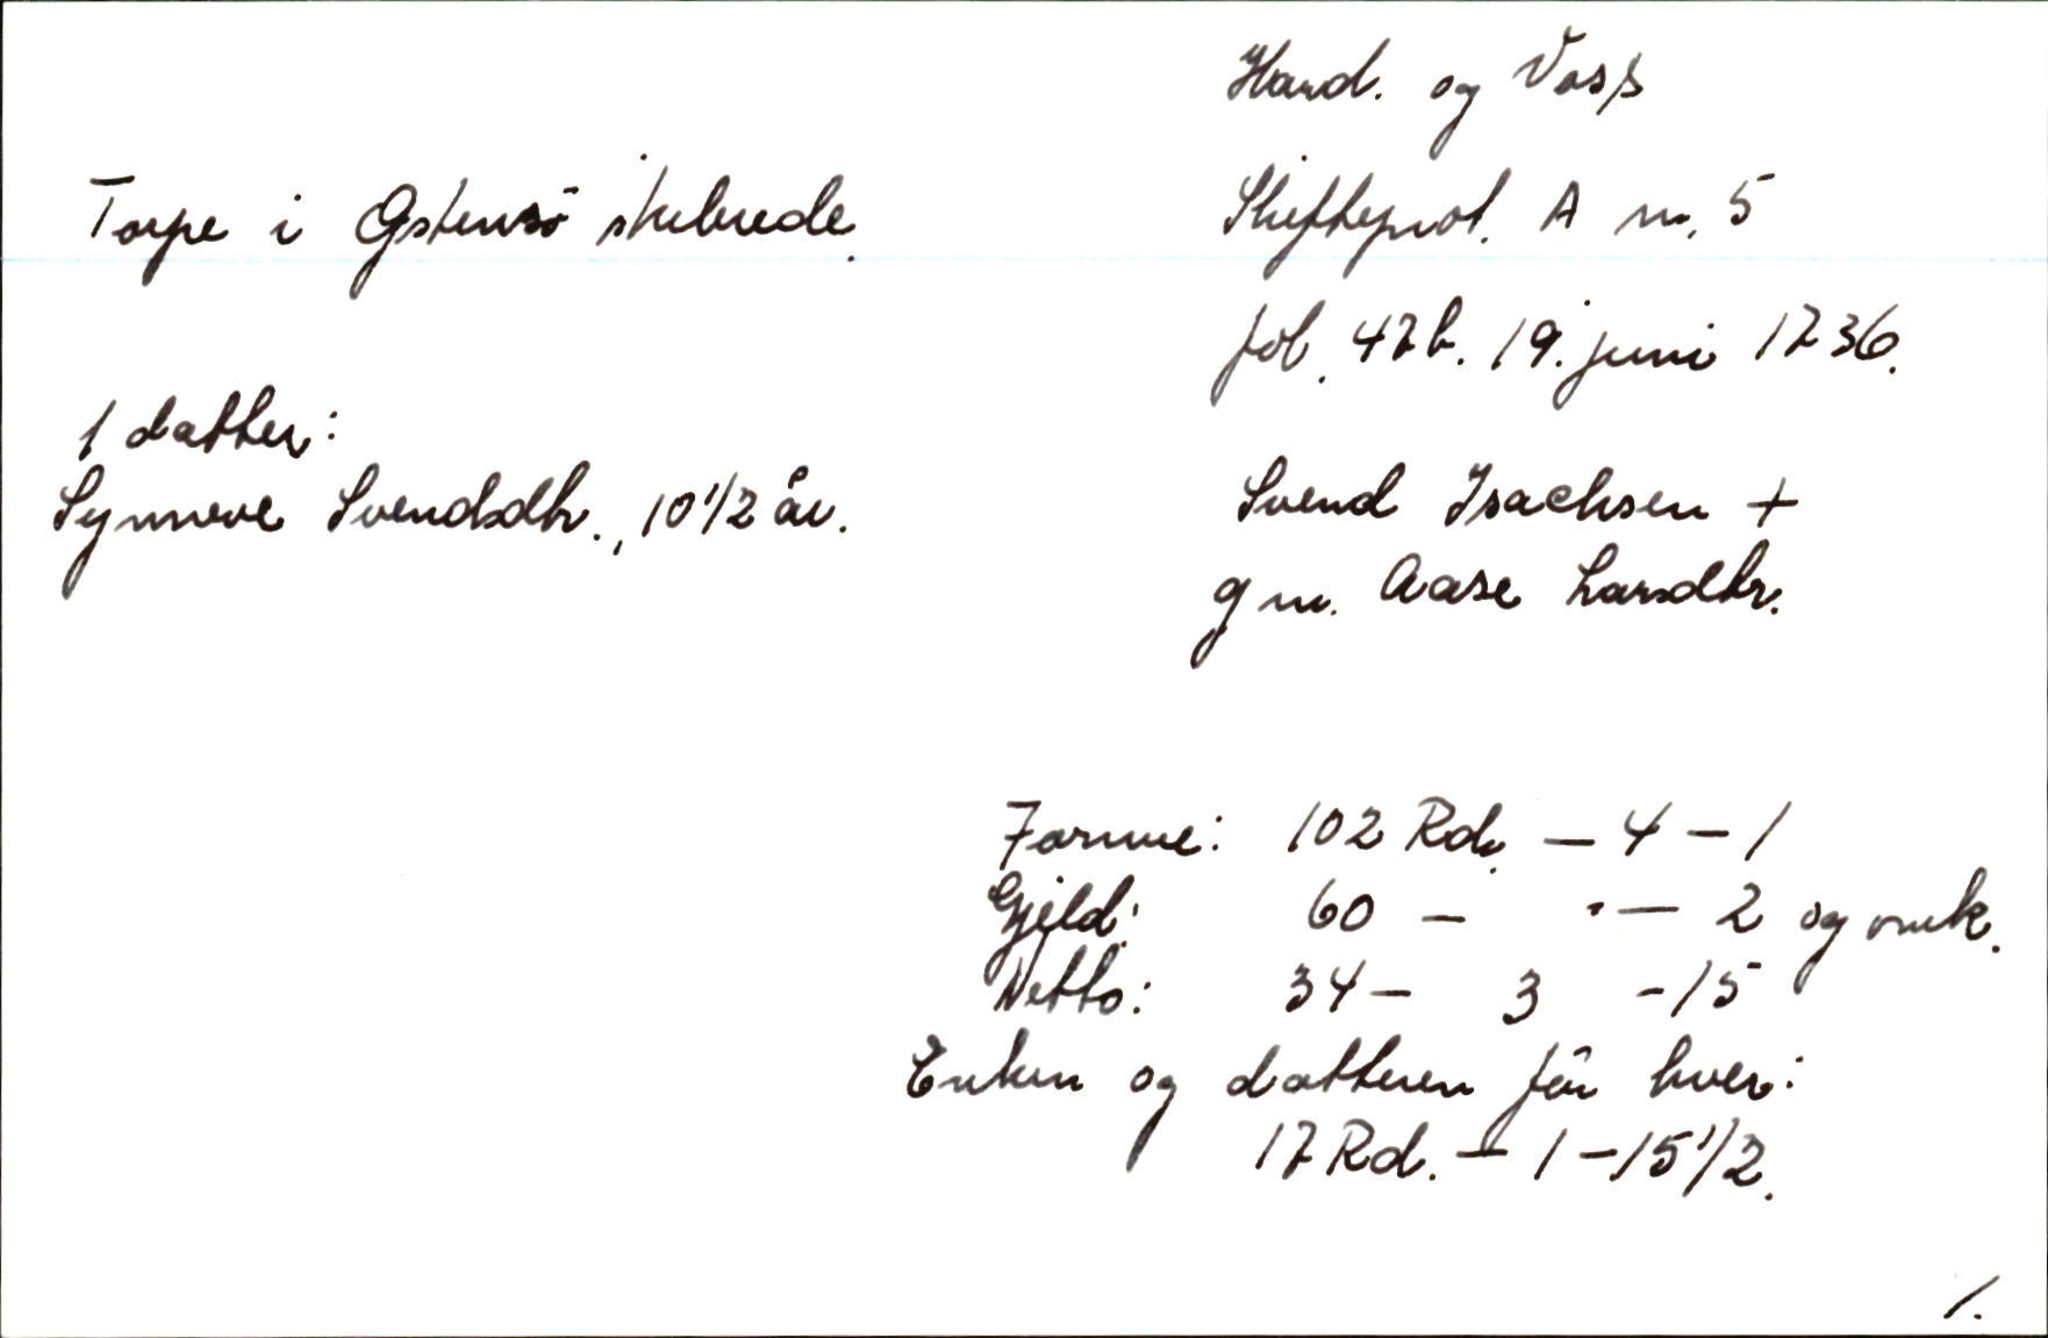 Hard. og Voss
Torpe i Østensö skibrede.
Skifteprot. A nr. 5
fol. 47b. 19. juni 1736.
1 datter:
Synneve Svendsdtr., 10 1/2 år.
Svend Isachsen +
g m. Aase Larsdtr.
Formue: 102 Rd. - 4 - 1
Gjeld: 60 - · - 2 og omk.
Netto: 34 - 3 - 15
Enken og datteren får hver:
17 Rd. - 1 - 15 1/2.
1.